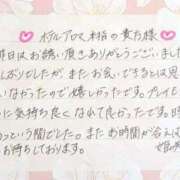 ホテルアロマ 本格の貴方様
昨日はお誘い頂きありがとうございま
しぶりでしたが またお会いできるとは思
いなかったので嬉しかったです。プレイも
に気持ち良くなれて良かったです。時
っという間でした。またお時間が合えば
お待ちしております。